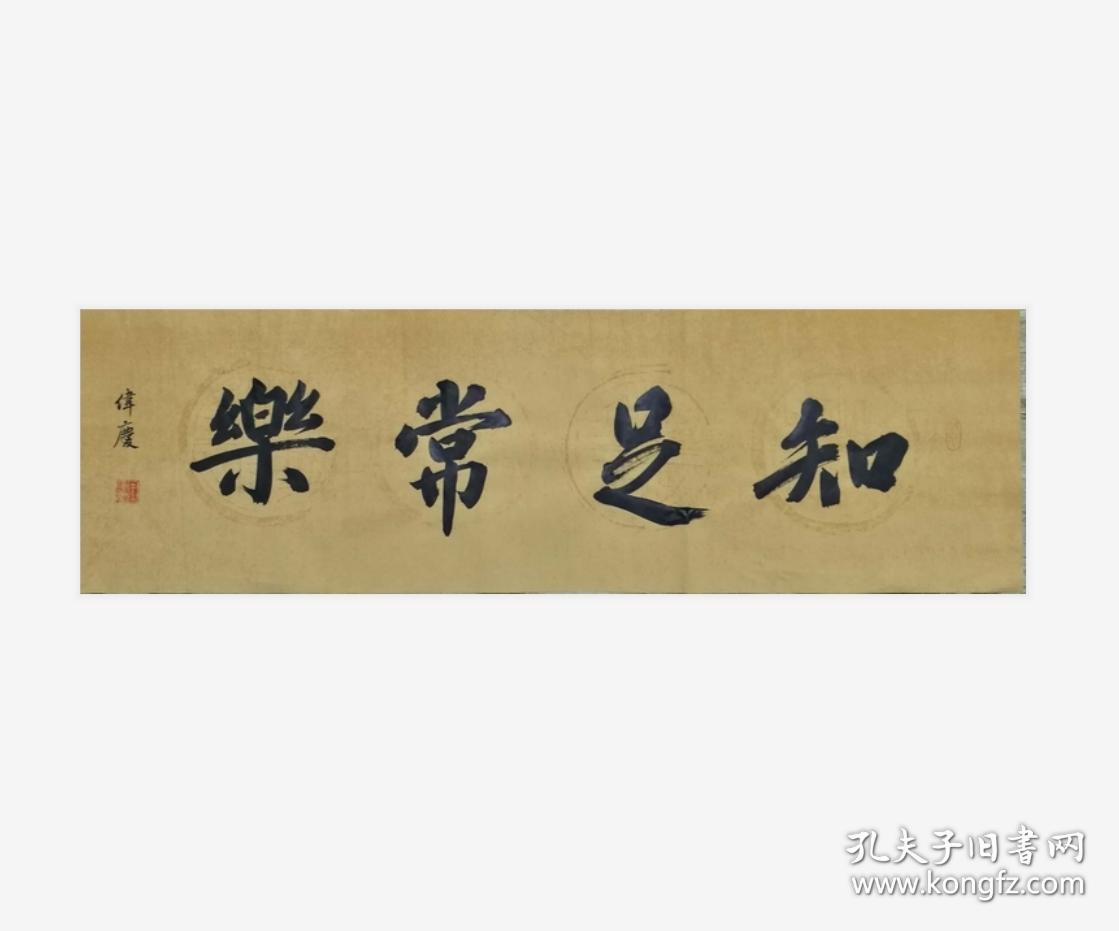 知足常樂
偉慶
孔夫子旧書网
www.kongfz.com